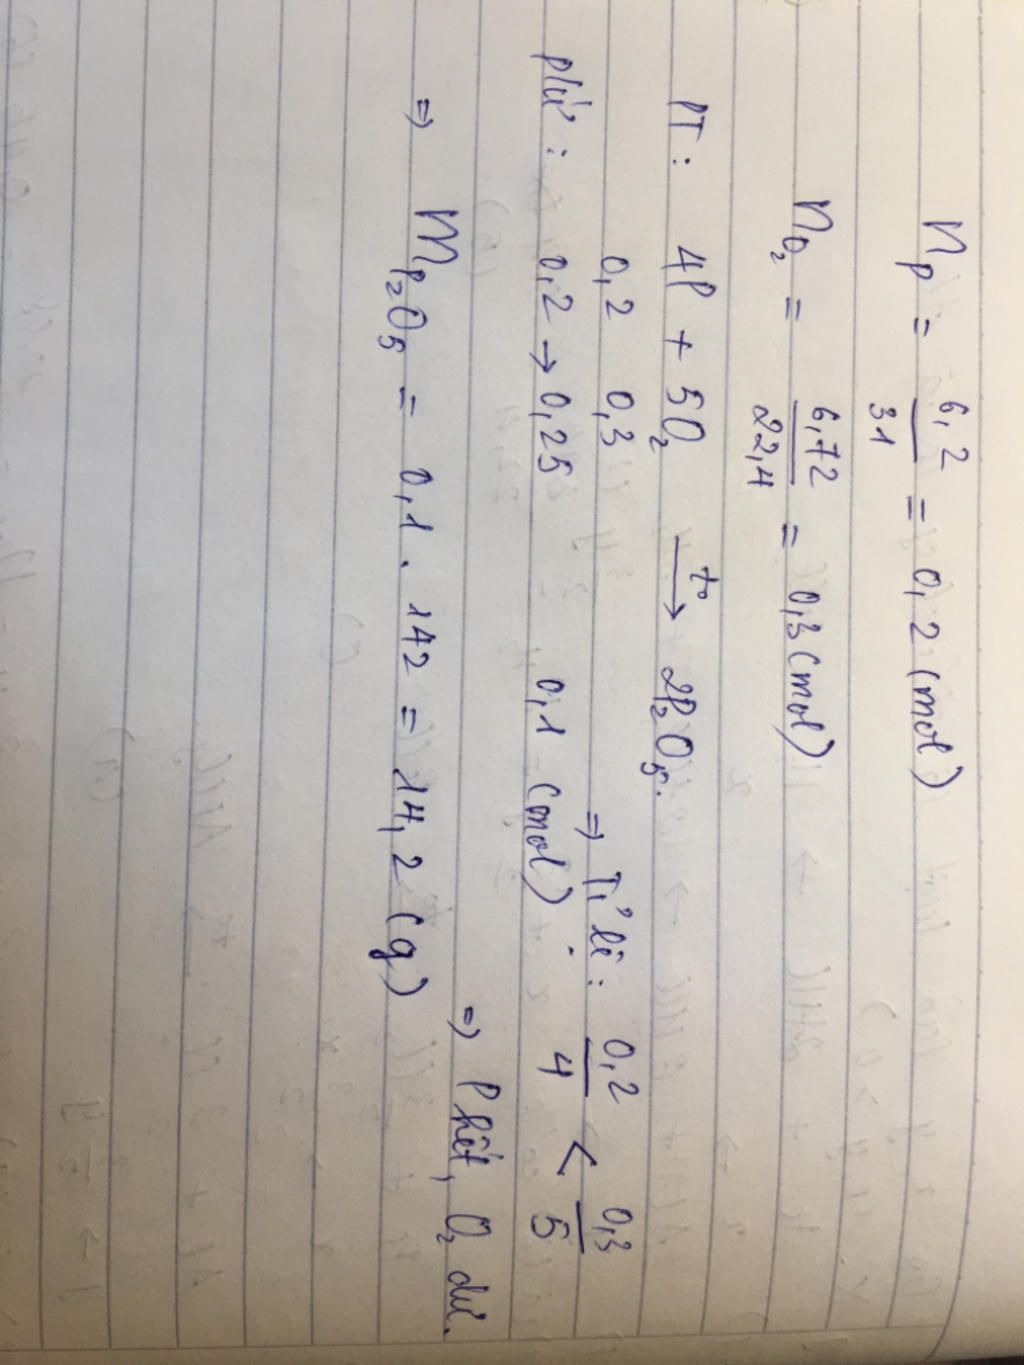 n_P = 6,2/31 = 0,2 (mol)
n_O₂ = 6,72/22,4 = 0,3 (mol)
PT: 4P + 5O₂ →(t°) 2P₂O₅.
0,2 0,3 => Tỉ lệ: 0,2/4 < 0,3/5
pứ: 0,2 → 0,25 0,1 (mol)
=> P hết, O₂ dư.
=> m_P₂O₅ = 0,1 . 142 = 14,2 (g)